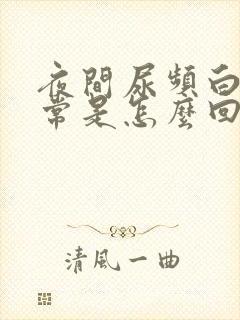 夜間尿頻白
常是怎麼回
清風一曲